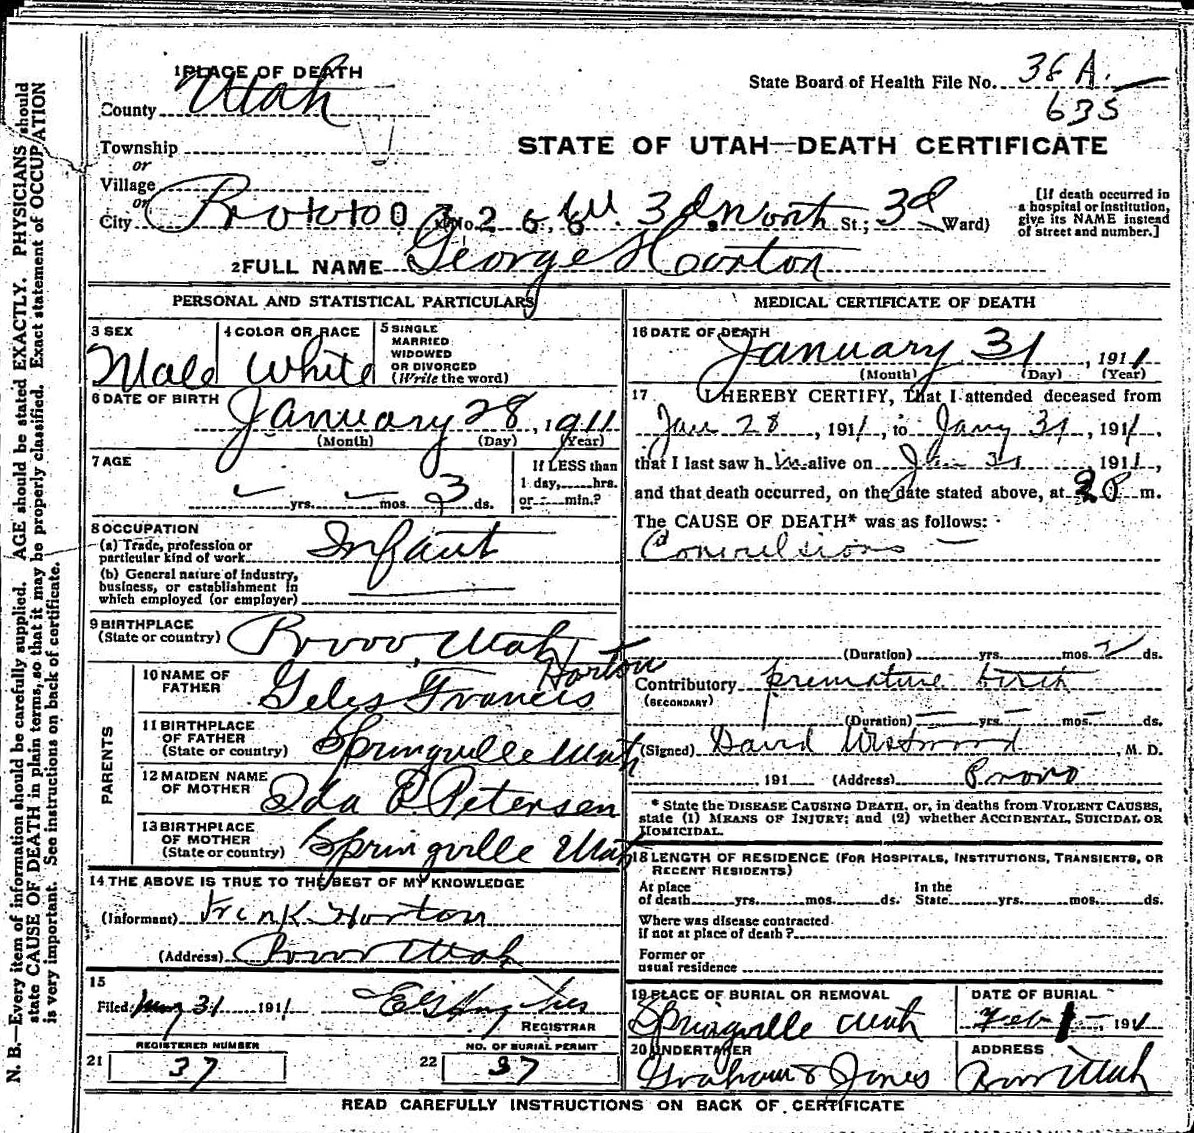 1 PLACE OF DEATH
County Utah
State Board of Health File No. 38 A.
635
Township
or
Village
or
City Provo No. 268 W. 3d North St.; 3d Ward)
STATE OF UTAH—DEATH CERTIFICATE
[If death occurred in a hospital or institution, give its NAME instead of street and number.]
2 FULL NAME George Horton
PERSONAL AND STATISTICAL PARTICULARS
3 SEX
Male
4 COLOR OR RACE
White
5 SINGLE
MARRIED
WIDOWED
OR DIVORCED
(Write the word)
6 DATE OF BIRTH
January 28, 1911
(Month) (Day) (Year)
7 AGE
yrs. mos. 3 ds.
If LESS than
1 day, hrs.
or min.?
8 OCCUPATION
(a) Trade, profession or
particular kind of work Infant
(b) General nature of industry,
business, or establishment in
which employed (or employer)
9 BIRTHPLACE
(State or country) Provo, Utah
PARENTS
10 NAME OF
FATHER Giles Francis Horton
11 BIRTHPLACE
OF FATHER
(State or country) Springville Utah
12 MAIDEN NAME
OF MOTHER Ida Petersen
13 BIRTHPLACE
OF MOTHER
(State or country) Springville Utah
14 THE ABOVE IS TRUE TO THE BEST OF MY KNOWLEDGE
(Informant) Frank Horton
(Address) Provo Utah
15
Filed 31 1911
REGISTRAR
REGISTERED NUMBER
21 37
NO. OF BURIAL PERMIT
22 37
MEDICAL CERTIFICATE OF DEATH
16 DATE OF DEATH
January 31, 1911
(Month) (Day) (Year)
17 I HEREBY CERTIFY, That I attended deceased from
Jan 28, 1911, to Jany 31, 1911,
that I last saw him alive on Jan 31 1911,
and that death occurred, on the date stated above, at m.
The CAUSE OF DEATH* was as follows:
Convulsions
(Duration) yrs. mos. 2 ds.
Contributory premature birth
(SECONDARY)
(Duration) yrs. mos. ds.
(Signed) David Westwood, M. D.
191 (Address) Provo
* State the DISEASE CAUSING DEATH, or, in deaths from VIOLENT CAUSES,
state (1) MEANS OF INJURY; and (2) whether ACCIDENTAL, SUICIDAL OR
HOMICIDAL.
18 LENGTH OF RESIDENCE (FOR HOSPITALS, INSTITUTIONS, TRANSIENTS, OR
RECENT RESIDENTS)
At place
of death yrs. mos. ds.
In the
State yrs. mos. ds.
Where was disease contracted
if not at place of death?
Former or
usual residence
19 PLACE OF BURIAL OR REMOVAL
Springville Utah
DATE OF BURIAL
Feb 1, 1911
20 UNDERTAKER
Graham & Jones
ADDRESS
Provo Utah
READ CAREFULLY INSTRUCTIONS ON BACK OF CERTIFICATE
N. B.—Every item of information should be carefully supplied. AGE should be stated EXACTLY. PHYSICIANS should
state CAUSE OF DEATH in plain terms, so that it may be properly classified. Exact statement of OCCUPATION
is very important. See instructions on back of certificate.